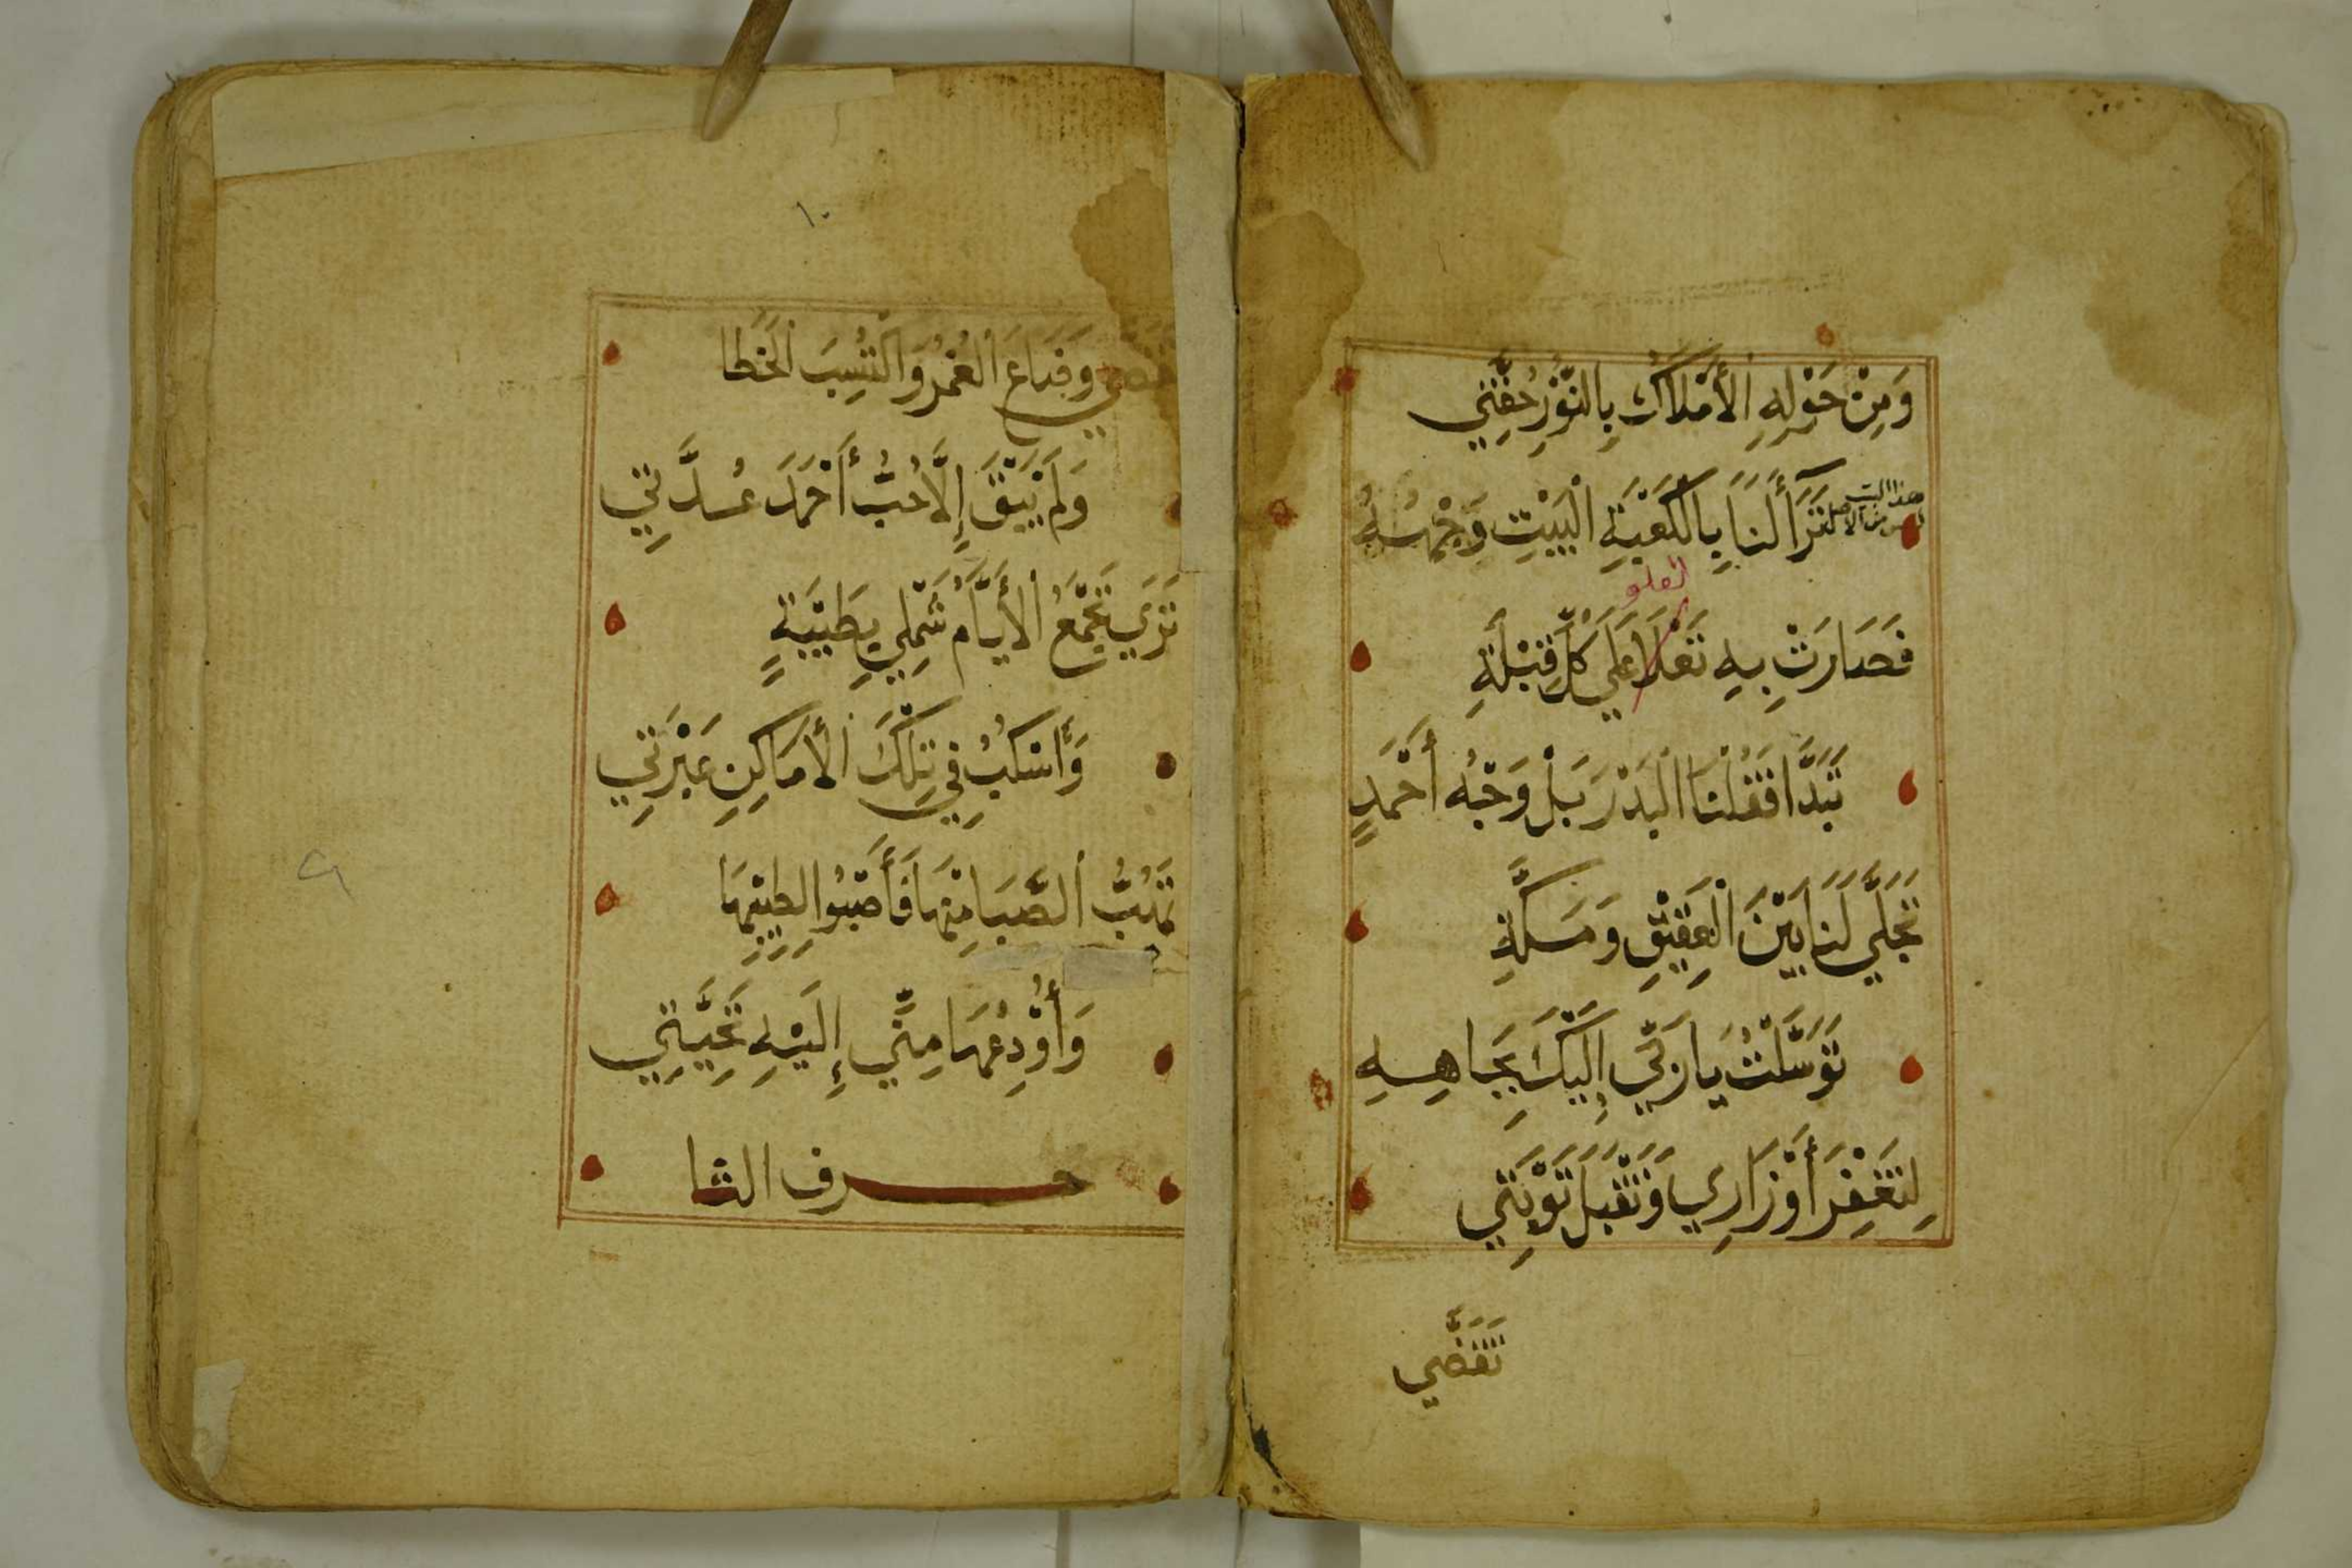 وَمِنْ حَوْلِهِ الأَمْلَاكُ بِالنُّوْرِ حُفَّتِي
هذا البيت ليس من الأصل
تَرَآ لَنَا بِالْكَعْبَةِ الْبَيْتِ وَجْهُهُ
العلو
فَصَارَتْ بِهِ تَعْلَا عَلَي كُلِّ قِبْلَةِ
تَبَدَّا فَقُلْنَا الْبَدْرَ بَلْ وَجْهُ أَحْمَدٍ
تَجَلَّي لَنَا بَيْنَ الْعَقِيْقِ وَمَكَّةِ
تَوَسَّلْتُ يَا رَبِّي إِلَيْكَ بِجَاهِهِ
لِتَغْفِرَ أَوْزَارِي وَتَقْبَلَ تَوْبَتِي
تَقَضَّي
١٠
وَضَاعَ الْعُمْرُ وَاكْتُسِبَ الْخَطَا
وَلَمْ يَبْقَ إِلَّا حُبُّ أَحْمَدَ عُدَّتِي
تَرَي تَجْمَعُ الأَيَّامُ شَمْلِي بِطَيْبَةٍ
وَأَسْكُبُ فِي تِلْكَ الأَمَاكِنِ عَبْرَتِي
تَهُبُّ الصَّبَا مِنْهَا فَأَصْبُوا لِطِيْبِهَا
٩
وَأُوْدِعُهَا مِنِّي إِلَيْهِ تَحِيَّتِي
حرف الثا